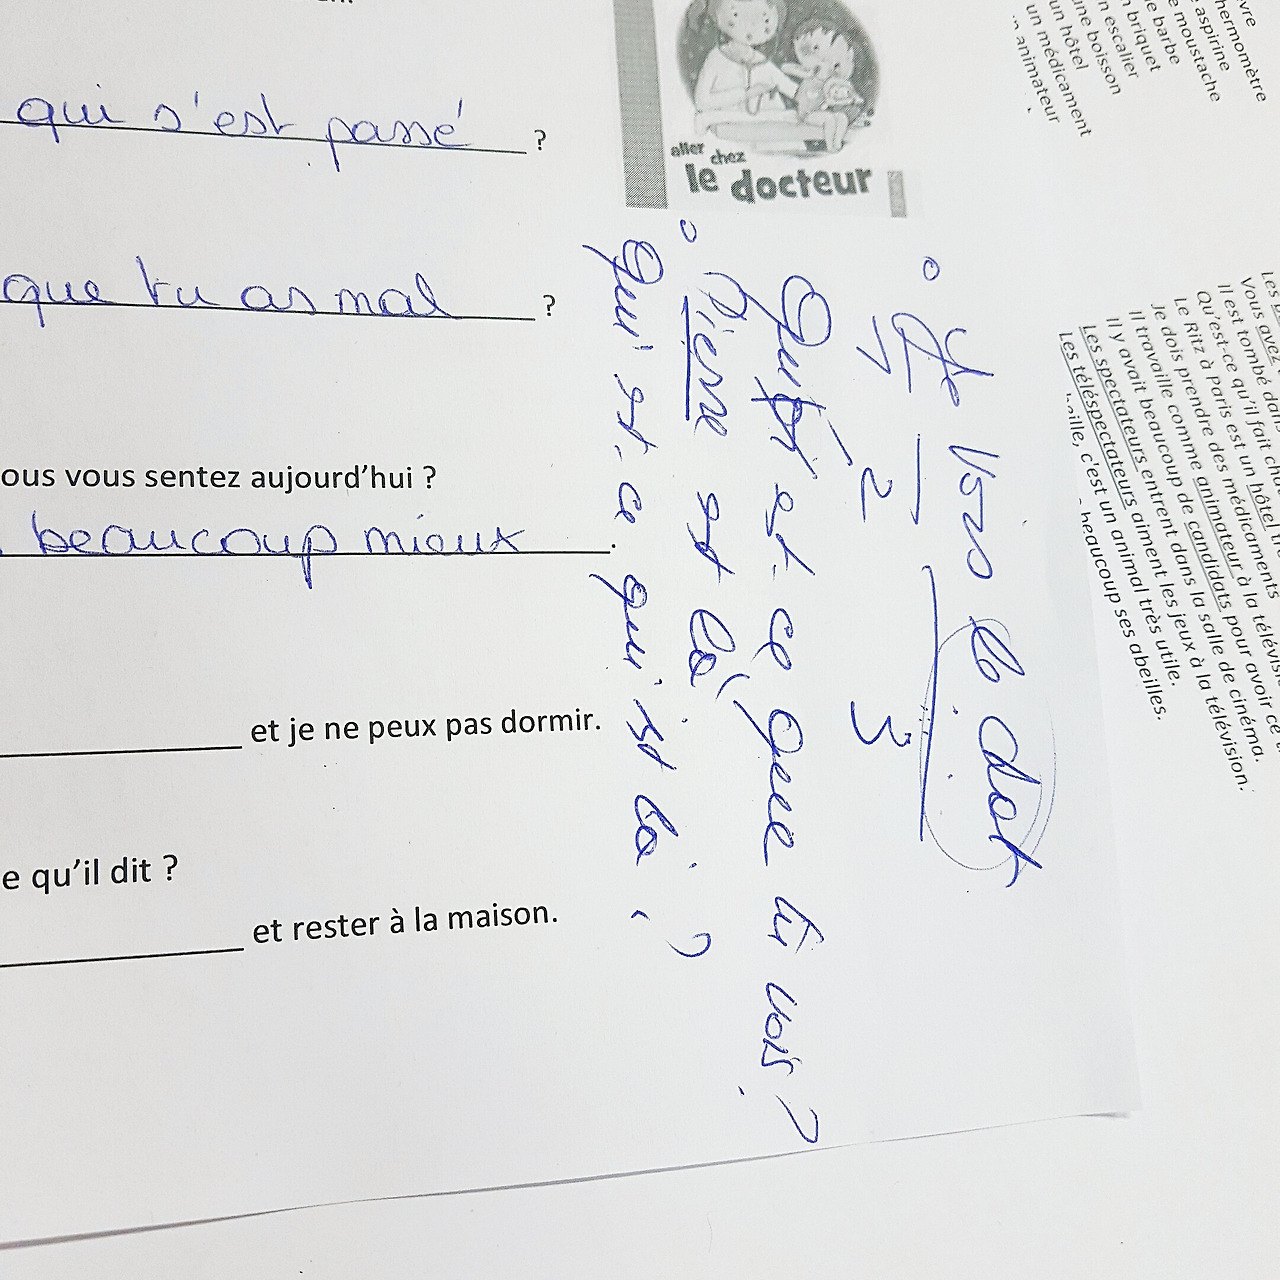 qui s'est passé ?
que tu as mal ?
ous vous sentez aujourd'hui ?
beaucoup mieux.
et je ne peux pas dormir.
e qu'il dit ?
et rester à la maison.
aller chez
le docteur
Je vois le
1 2 3
Qu'est-ce que tu vois ?
Pierre est là
Qui est-ce qui est là ?
vre
hermomètre
aspirine
e moustache
e barbe
n briquet
n escalier
une boisson
un hôtel
un médicament
n animateur
Les
Vous avez
Il est tombé dans
Qu'est-ce qu'il fait
Le Ritz à Paris est un hôtel
Je dois prendre des médicaments
Il travaille comme animateur à la
Il y avait beaucoup de candidats pour avoir ce
Les spectateurs entrent dans la salle de cinéma.
Les téléspectateurs aiment les jeux à la télévision.
eille, c'est un animal très utile.
beaucoup ses abeilles.